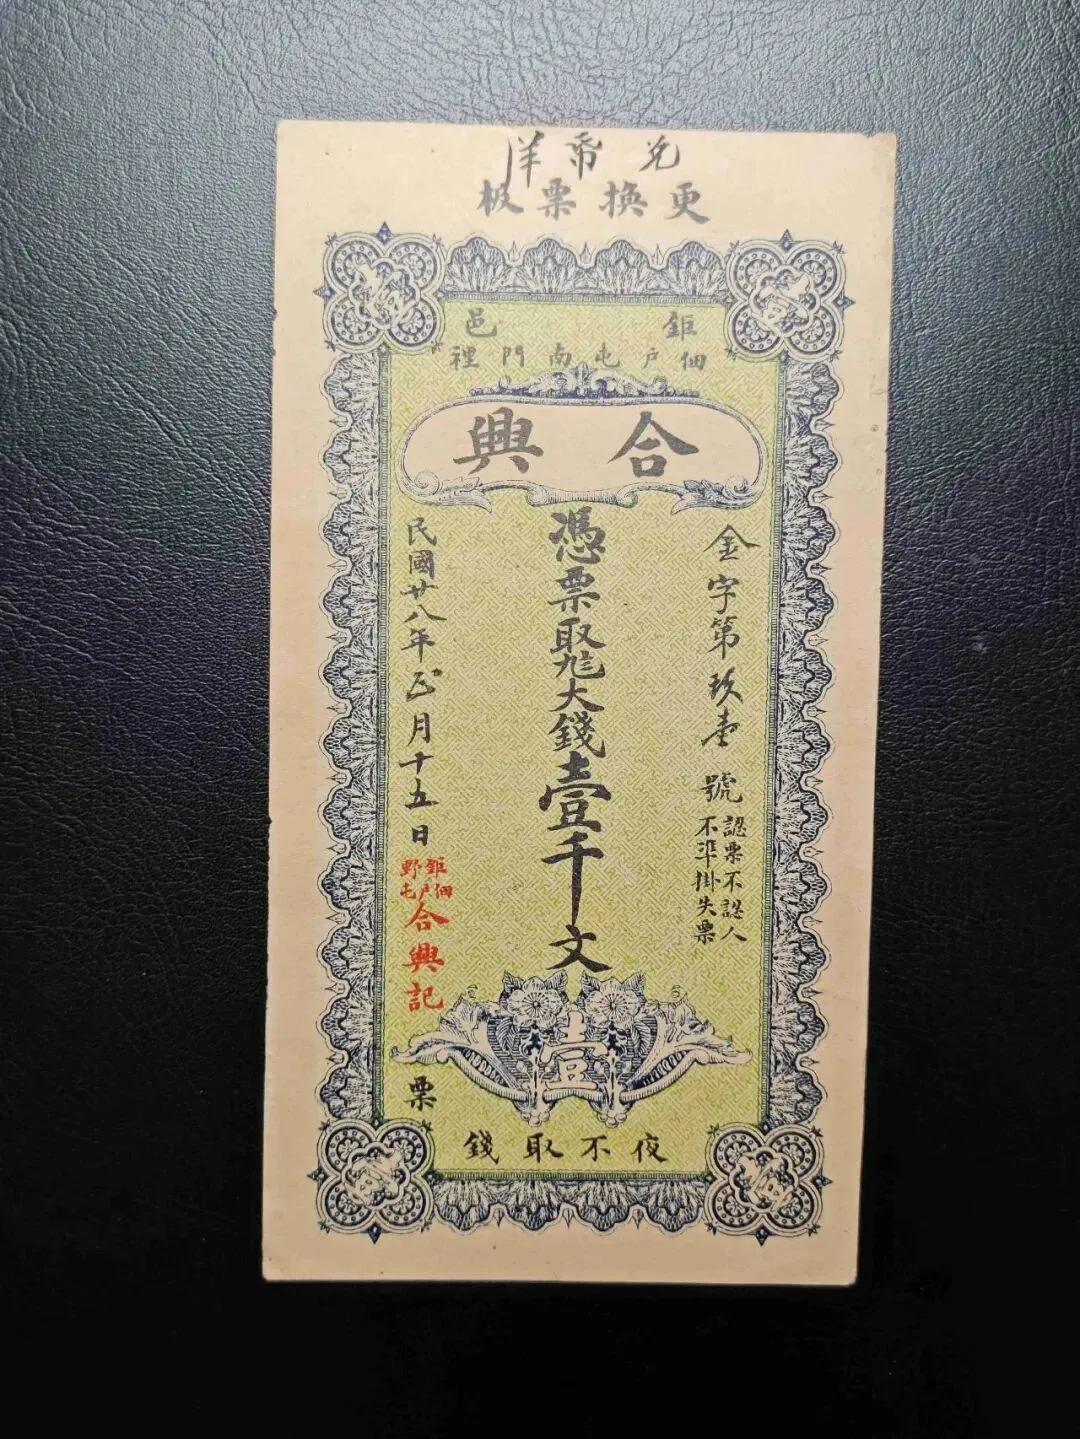 兌帋洋
更換票板
鉅邑
佃戶屯南門裡
合興
金字第玖壹號
認票不認人
不準掛失票
憑票取大錢壹千文
民國廿八年正月十五日
鉅野
佃戶屯
合興記
票
壹
夜不取錢
壹
壹
壹
壹